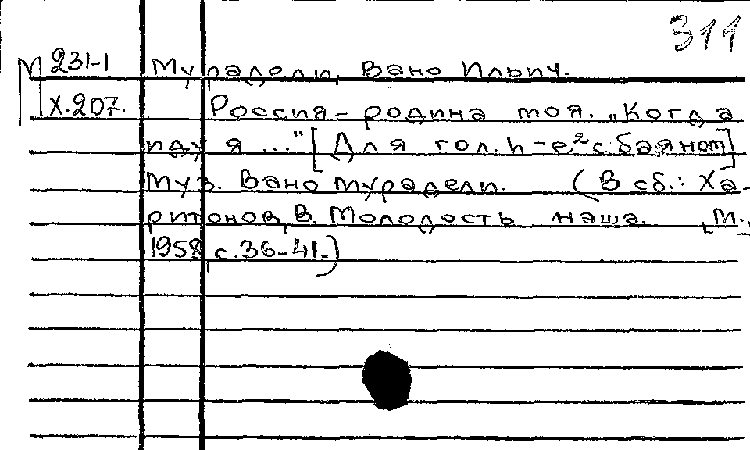 311
М 231-1 Мурадели, Вано Ильич.
X.207. Россия - родина моя. „Когда
иду я ..." [Для гол. h-e² с баяном]
Муз. Вано Мурадели. (В сб.: Ха-
ритонов, В. Молодость наша. М.,
1958, с.36-41.)